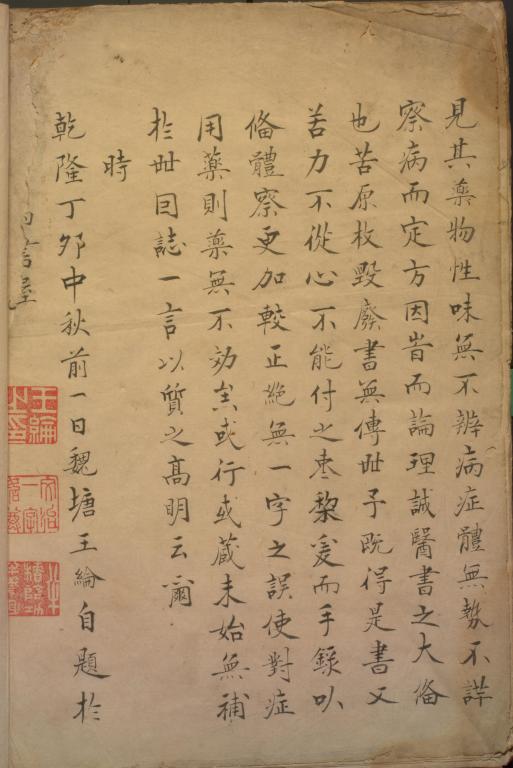 見其藥物性味無不辨病症體無勢不詳
察病而定方因岩而論理誠醫書之大俻
也苦原板毀廢書無傳世予既得是書又
苦力不從心不能付之棗梨爰而手錄以
俻體察更加較正絶無一字之誤使對症
用藥則藥無不効矣或行或藏未始無補
扵世囙誌一言以質之髙明云爾
時
乾隆丁夘中秋前一日魏塘王綸自題扵
王綸